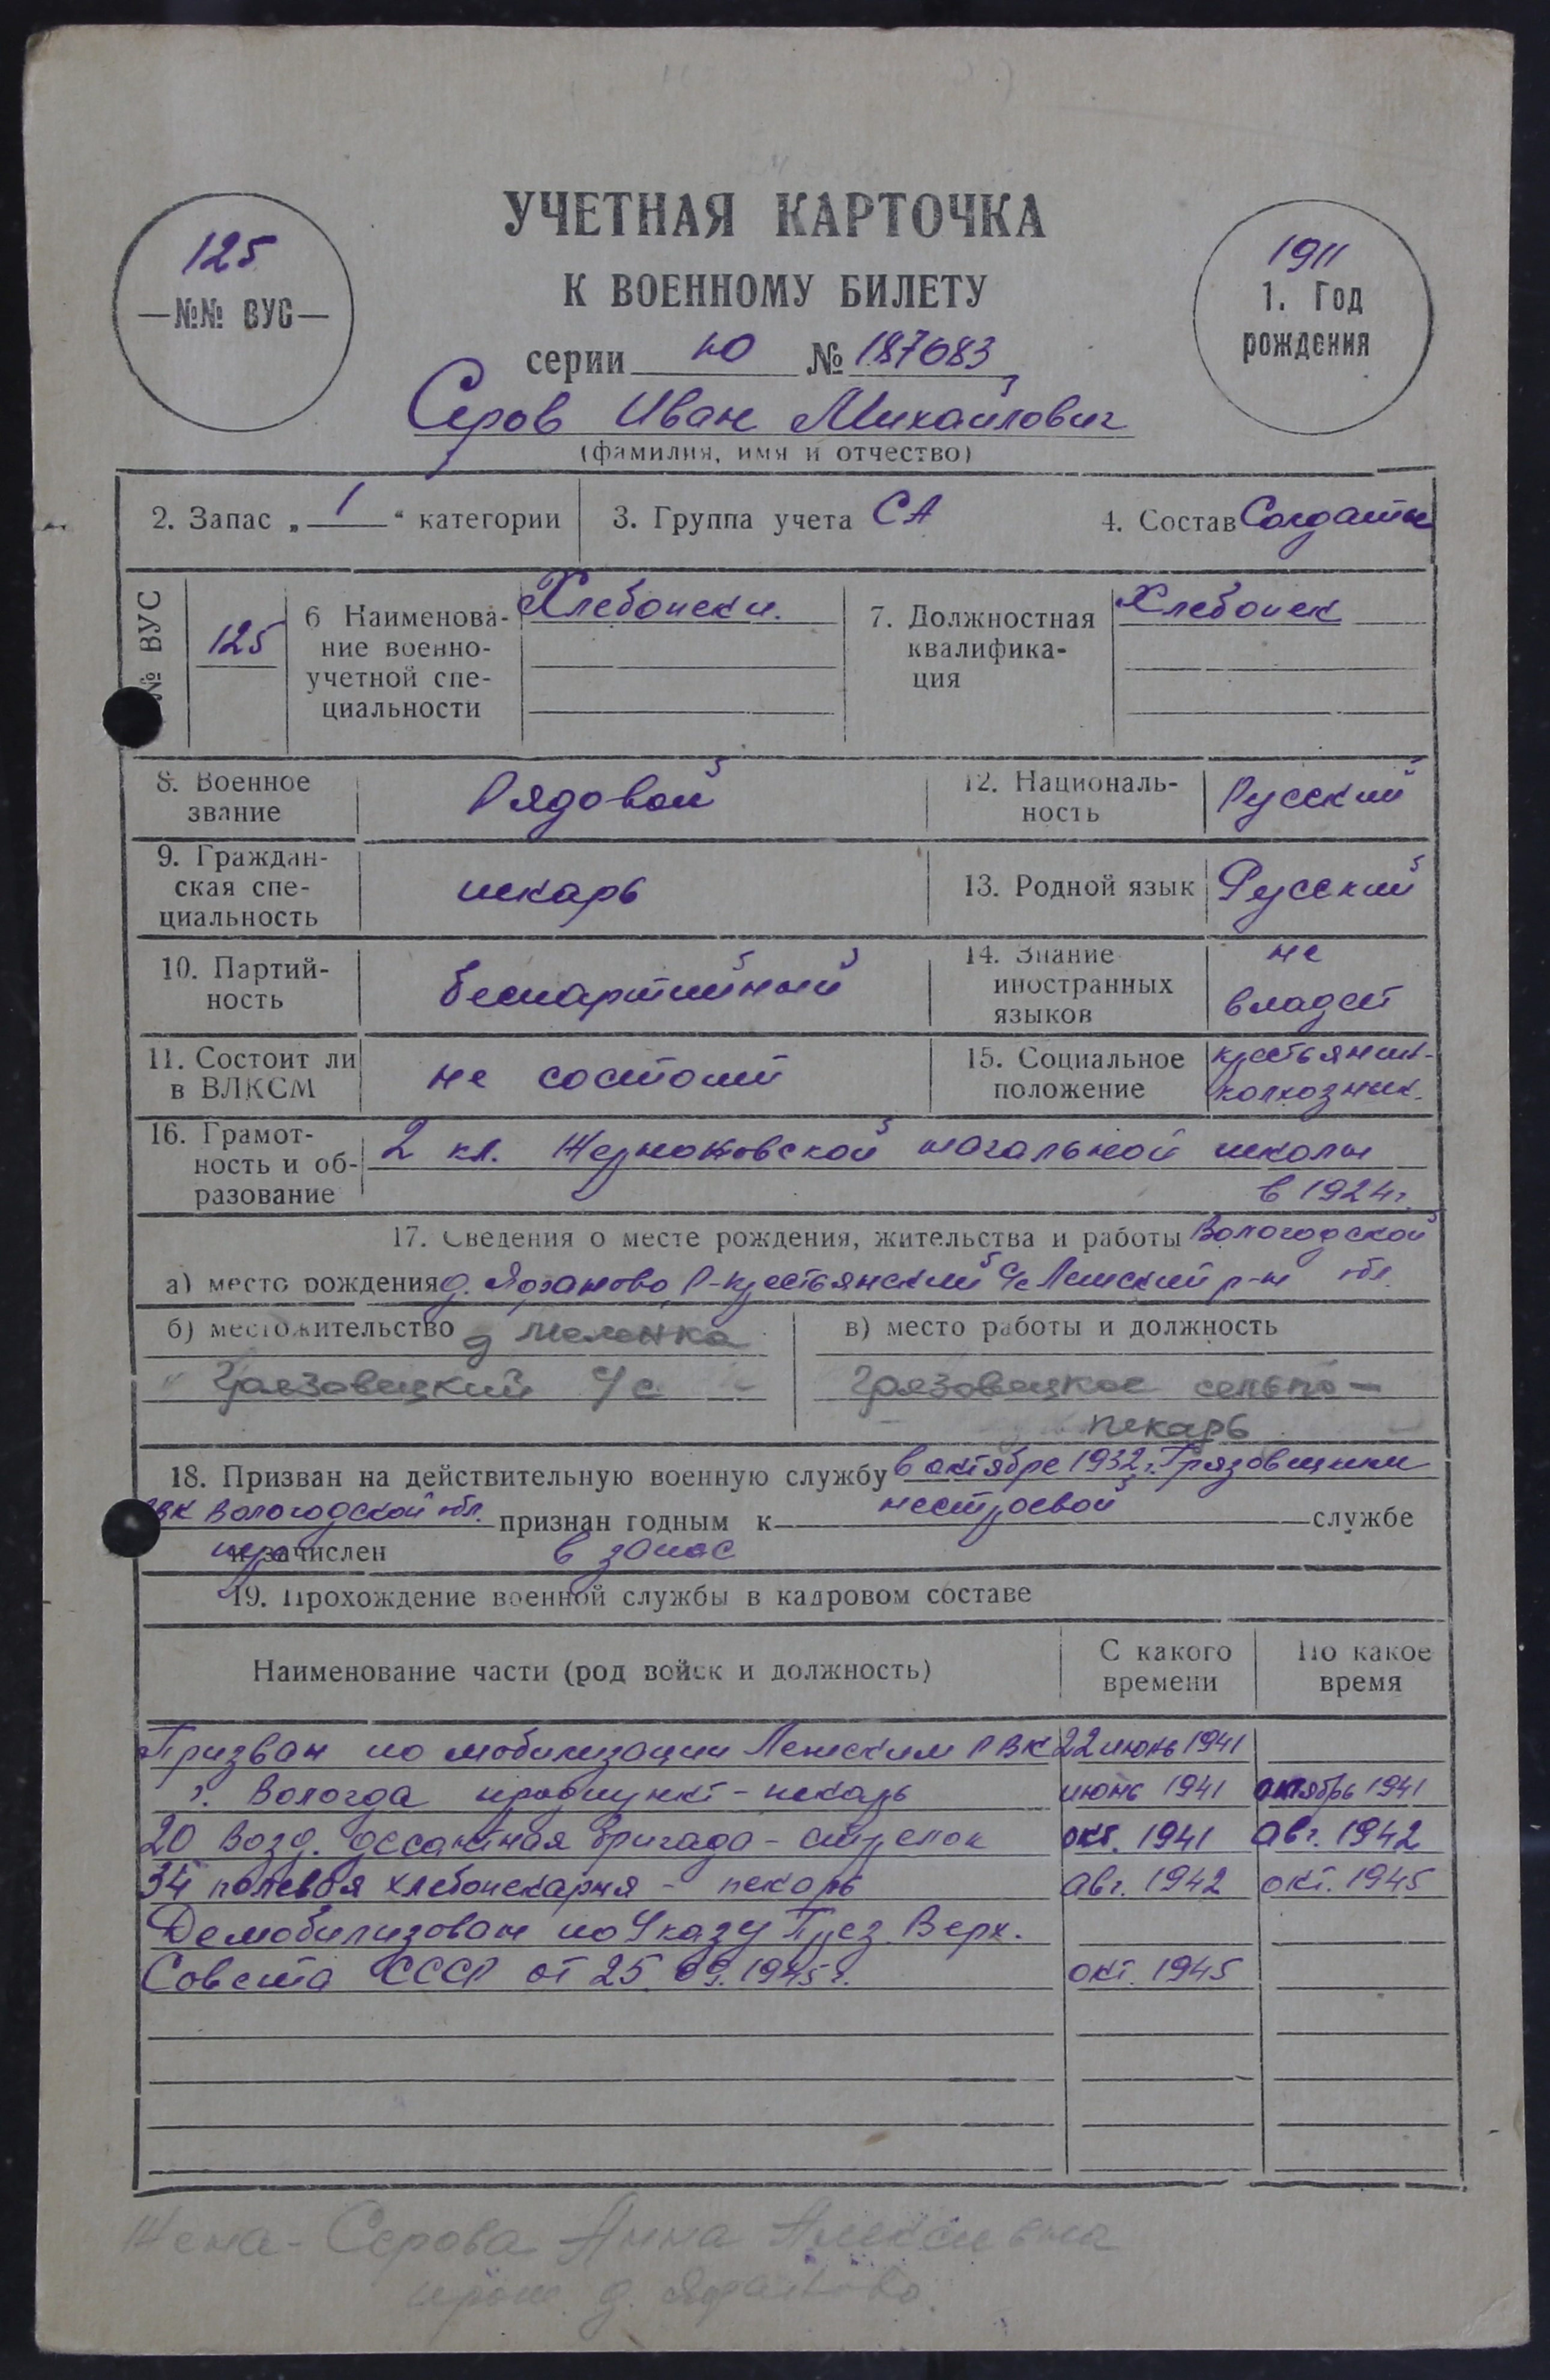 УЧЕТНАЯ КАРТОЧКА
К ВОЕННОМУ БИЛЕТУ
125
—№№ ВУС—
1911
1. Год
рождения
серии Ю № 187083
Серов Иван Михайлович
(фамилия, имя и отчество)
2. Запас „ 1 “ категории
3. Группа учета СА
4. Состав Солдаты
№ ВУС
125
6 Наименова-
ние военно-
учетной спе-
циальности
Хлебопеки.
7. Должностная
квалифика-
ция
Хлебопек
8. Военное
звание
Рядовой
12. Националь-
ность
Русский
9. Граждан-
ская спе-
циальность
пекарь
13. Родной язык
Русский
10. Партий-
ность
беспартийный
14. Знание
иностранных
языков
не
владеет
11. Состоит ли
в ВЛКСМ
не состоит
15. Социальное
положение
крестьянин-
колхозник.
16. Грамот-
ность и об-
разование
2 кл. начальной школы
в 1924 г.
17. Сведения о месте рождения, жительства и работы Вологодской
а) место рождения д. Р-крестьянский с/с Лежский р-н обл.
б) местожительство д Меленка
Грязовецкий с/с
в) место работы и должность
Грязовецкое сельпо-
пекарь
18. Призван на действительную военную службу в октябре 1932 г. Грязовецким
РВК Вологодской обл. признан годным к нестроевой службе
и зачислен в запас
19. Прохождение военной службы в кадровом составе
Наименование части (род войск и должность)
С какого
времени
По какое
время
Призван по мобилизации Лежским РВК 22 июнь 1941
г. Вологда продпункт - пекарь июнь 1941 октябрь 1941
20 Возд. десантная бригада - стрелок окт. 1941 авг. 1942
34 полевая хлебопекарня - пекарь авг. 1942 окт. 1945
Демобилизован по Указу През. Верх.
Совета СССР от 25. 09. 1945 г. окт. 1945
Жена - Серова Анна Алексеевна
прож. д.